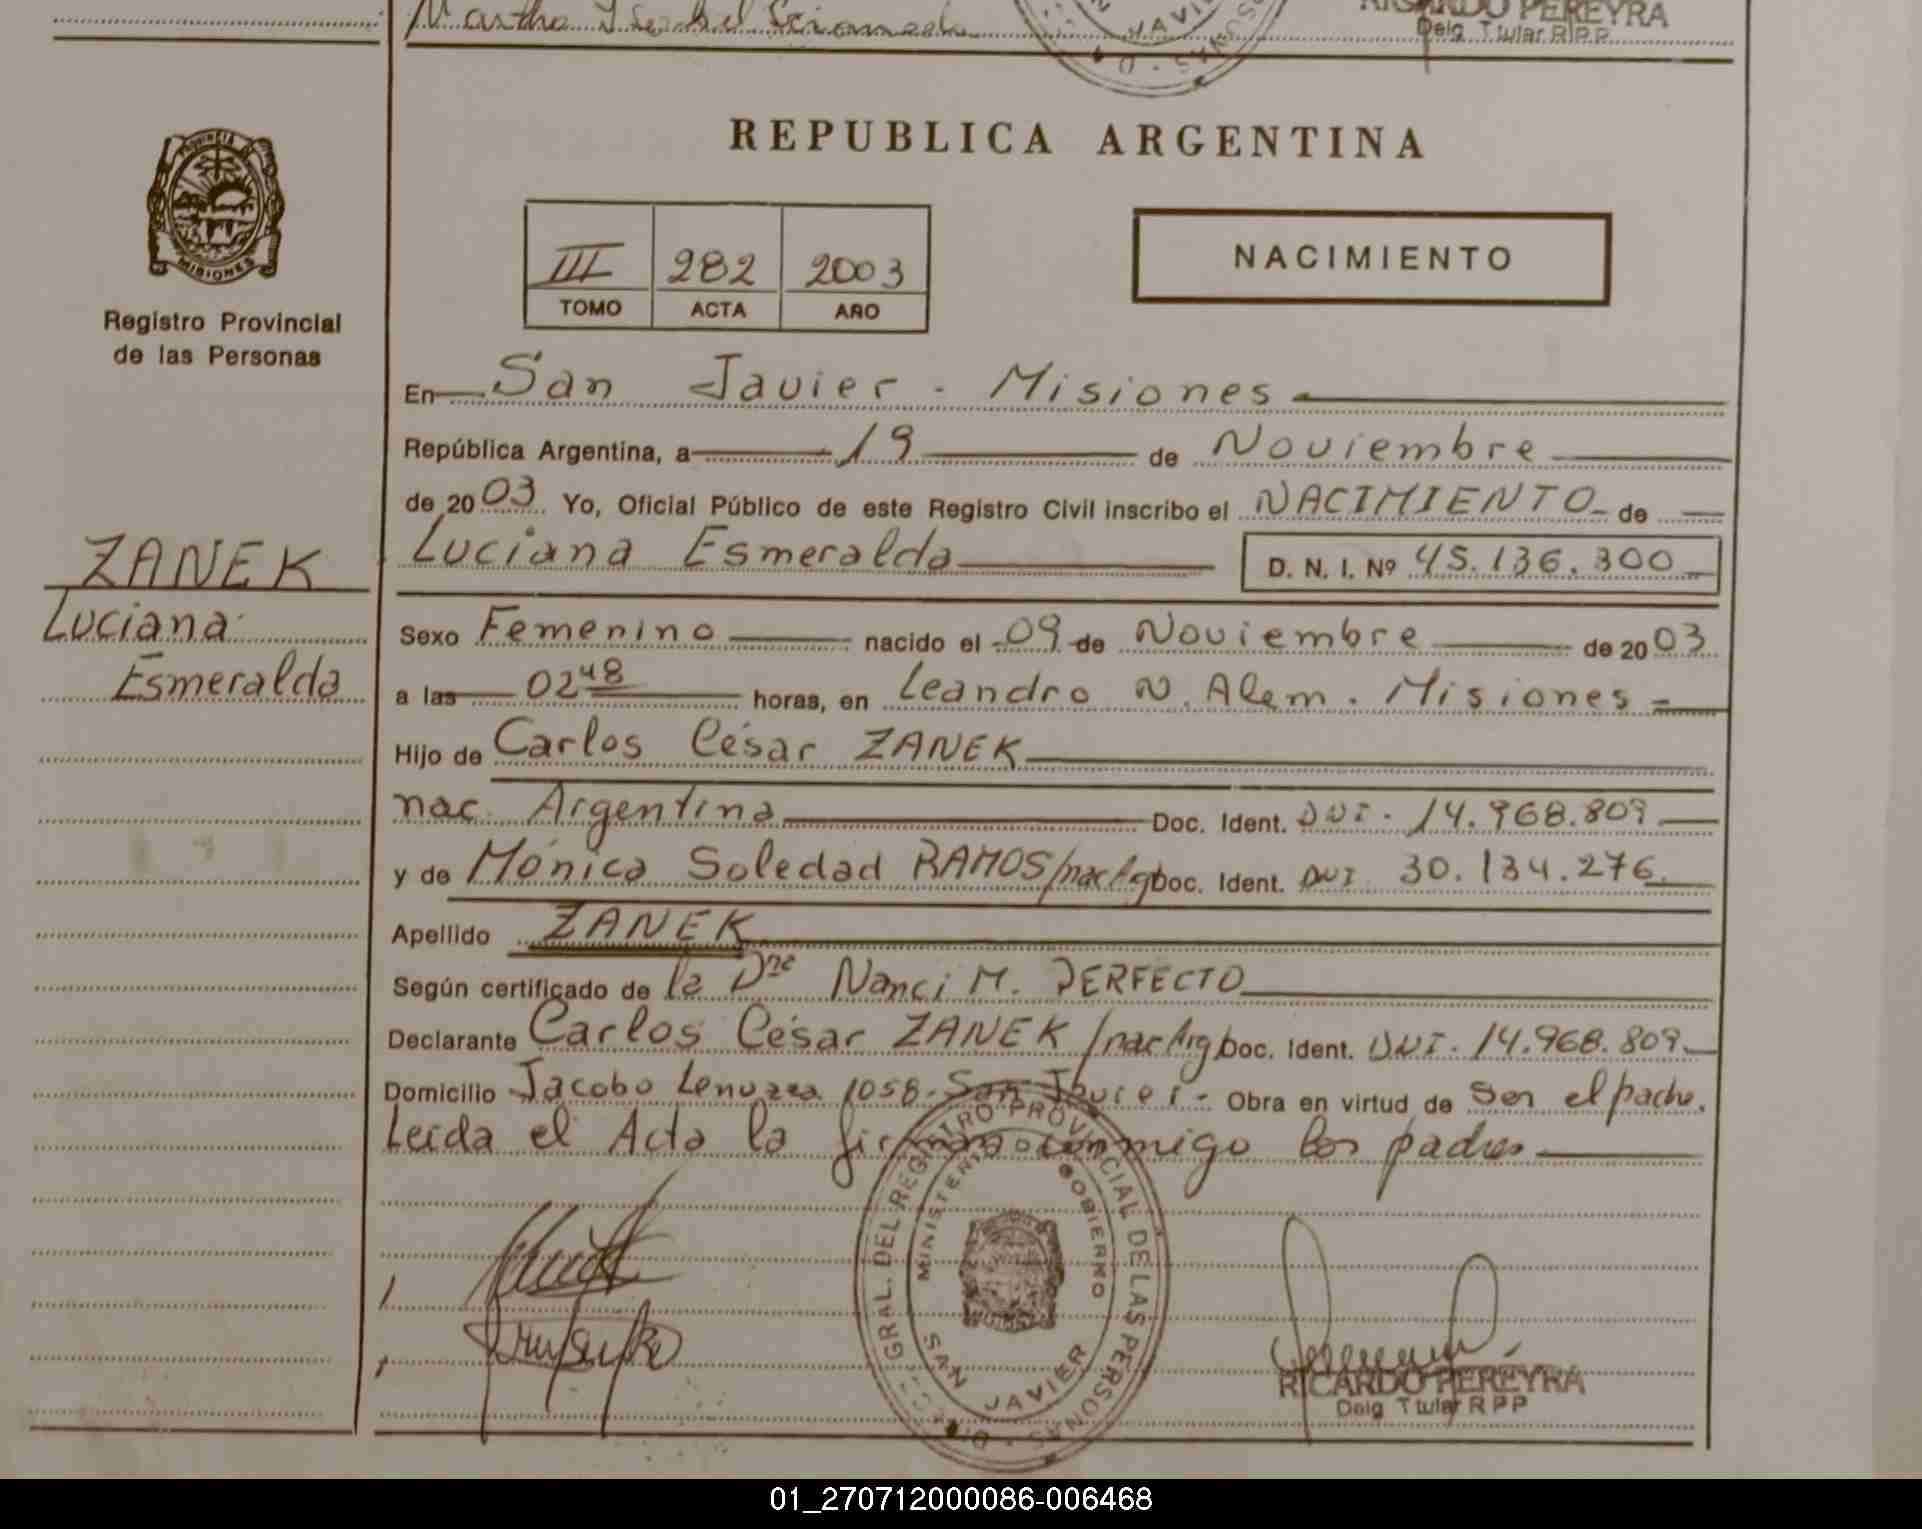 RICARDO PEREYRA
Delg Titular R.P.P.
JAVIER
REPUBLICA ARGENTINA
PROVINCIA DE
MISIONES
Registro Provincial
de las Personas
III 282 2003
TOMO ACTA AÑO
NACIMIENTO
En San Javier - Misiones
República Argentina, a 19 de Noviembre
de 2003 Yo, Oficial Público de este Registro Civil inscribo el NACIMIENTO de
Luciana Esmeralda D. N. I. Nº 45.136.300
ZANEK
Luciana
Esmeralda
Sexo Femenino nacido el 09 de Noviembre de 2003
a las 02 48 horas, en Leandro N. Alem. Misiones
Hijo de Carlos César ZANEK
nac. Argentina Doc. Ident. DNI. 14.968.809
y de Mónica Soledad RAMOS/nac Arg Doc. Ident. DNI 30.134.276
Apellido ZANEK
Según certificado de la Dra Nanci M. PERFECTO
Declarante Carlos César ZANEK/nac Arg Doc. Ident. DNI. 14.968.809
Domicilio Jacobo 1058 - San Javier - Obra en virtud de ser el padre.
Leída el Acta la firman conmigo los padres
GRAL. DEL REGISTRO PROVINCIAL DE LAS PERSONAS
MINISTERIO GOBIERNO
SAN JAVIER
RICARDO PEREYRA
Delg Titular R P P
01_270712000086-006468